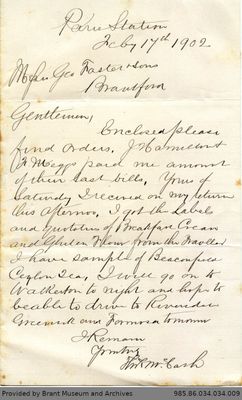 Paris Station
Feby 17th 1902
Messrs Geo Foster & Sons
Brantford
Gentlemen,
Enclosed please
find orders. J
& Meggs paid me amount
of their last bills, Yours of
Saturday I received on my return
this afternoon, I got the Labels
and quotation of Breakfast Cream
and Gluten from the Traveller
I have sample of Beaconsfield
Ceylon Tea, I will go on to
Walkerton to night and hope to
be able to drive to Riversdale
Greenock and Formosa tomorrow
I Remain
Yours truly
McCash
Property of Brant Museum and Archives
985.86.034.034.009